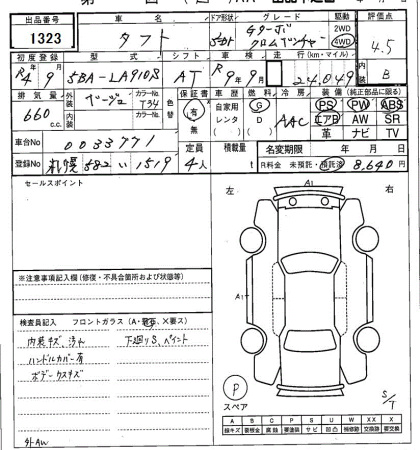 出品番号 車名 ドア形状 グレード 駆動 評価点
1323 タフト 5ドア Gターボ クロムベンチャー 2WD 4WD 4.5
初度登録 型式 シフト 車検 走行(km・マイル) 内装
R4年9月 5BA-LA910S AT R9年9月 24,049 B
排気量 外装 カラーNo. 色替 カラーNo. 保証書 車歴 燃料 冷房 装備(純正部品に限る)
660 c.c. ベージュ T34 有 無 自家用 レンタ G D AAC PS PW ABS
エアB AW SR
革 ナビ TV
車台No 0033771 定員 積載量 名変期限 年 月 日
登録No 札幌 582 い 1519 4人 t R料金 未預託・預託済 8,640円
セールスポイント 左 A1 右
※注意事項記入欄(修復・不具合箇所および状態等)
A1
検査員記入 フロントガラス(A・
内装キズ、汚れ 下廻りS、ペイント
ハンドルカバー有
ボデー小スキズ
外AW
P
スペア
S/T
A B C P S U W X XX
線キズ 要板金 腐蝕 要塗装 サビ 凹凸 補修跡 交換跡 要交換